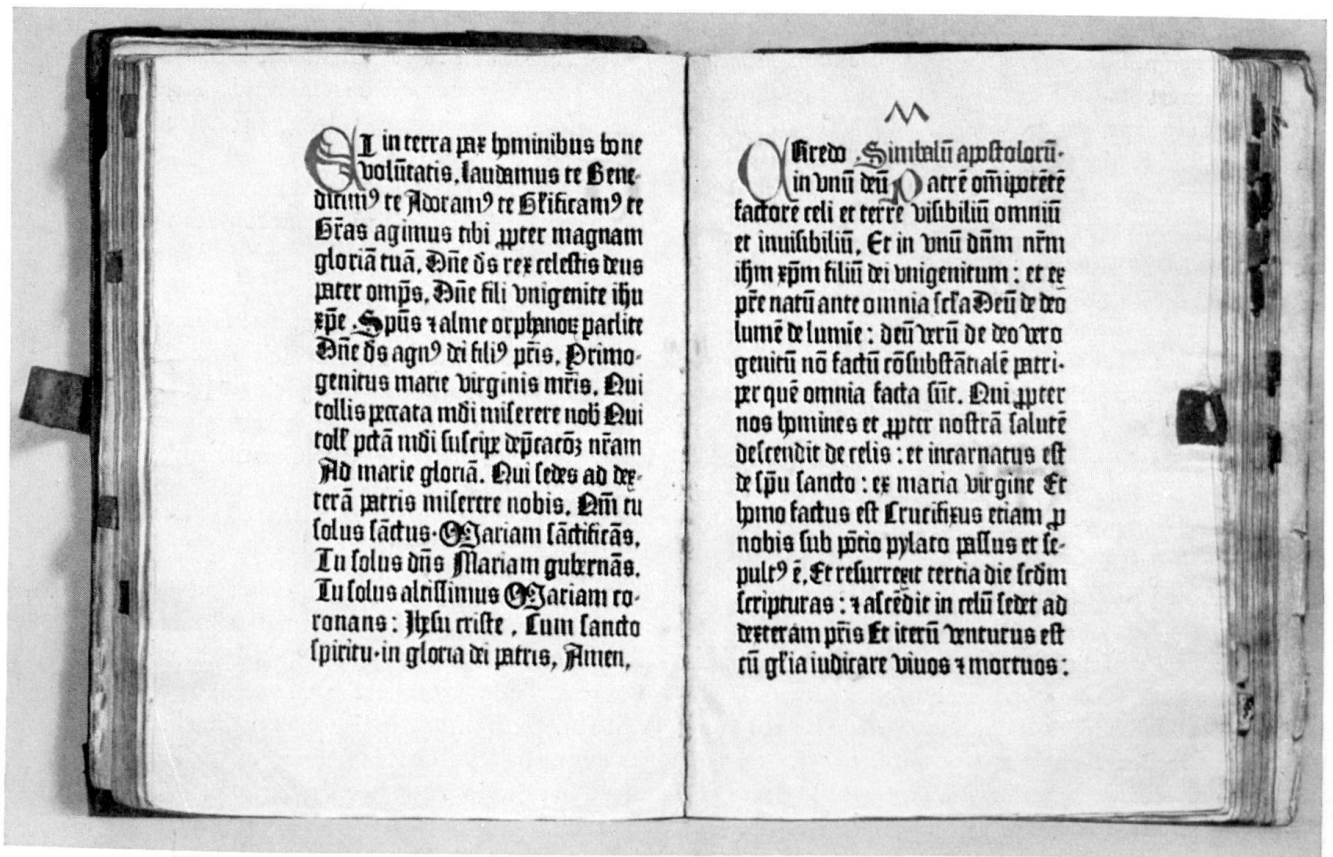 Et in terra pax hominibus bone
volūtatis. laudamus te Bene-
dicimꝰ te Adoramꝰ te Gl̄ificamꝰ te
Gr̄as agimus tibi ꝓpter magnam
gloriā tuā. Dn̄e dſ̄ rex celeſtis deus
pater omp̄s. Dn̄e fili vnigenite ihū
xp̄e. Spūs ⁊ alme orphanoꝝ paclite
Dn̄e dſ̄ agnꝰ dei filiꝰ pr̄is. Primo-
genitus marie virginis mr̄is. Qui
tollis peccata mdī miſerere nob̄ Qui
toll̄ pctā mdī ſuſcipe dep̄cacōꝫ nr̄am
Ad marie gloriā. Qui ſedes ad dex-
terā patris miſerere nobis. Qm̄ tu
ſolus ſāctus· Mariam ſāctificās.
Tu ſolus dn̄s Mariam gubernās.
Tu ſolus altiſſimus Mariam co-
ronans: Jheſu criſte. Cum ſancto
ſpiritu·in gloria dei patris, Amen.
M
Kredo. Simbalū apoſtolorū·
in vnū deū Patrē om̄ipotētē
factorē celi et terre viſibiliū omniū
et inuiſibiliū. Et in vnū dn̄m nr̄m
ihm̄ xp̄m filiū dei vnigenitum: et ex
pr̄e natū ante omnia ſcl̄a Deū de deo
lumē de lumīe: deū verū de deo vero
genitū nō factū cōſubſtātialē patri·
per quē omnia facta ſūt. Qui ꝓpter
nos homines et ꝓpter noſtrā ſalutē
deſcendit de celis: et incarnatus eſt
de ſpū ſancto: ex maria virgine Et
homo factus eſt Crucifixus etiam ꝓ
nobis ſub pōtio pylato paſſus et ſe-
pultꝰ ē. Et reſurrexit tercia die ſcd̄m
ſcripturas: ⁊ aſcēdit in celū ſedet ad
dexteram pr̄is Et iterū venturus eſt
cū gl̄ia iudicare viuos ⁊ mortuos: